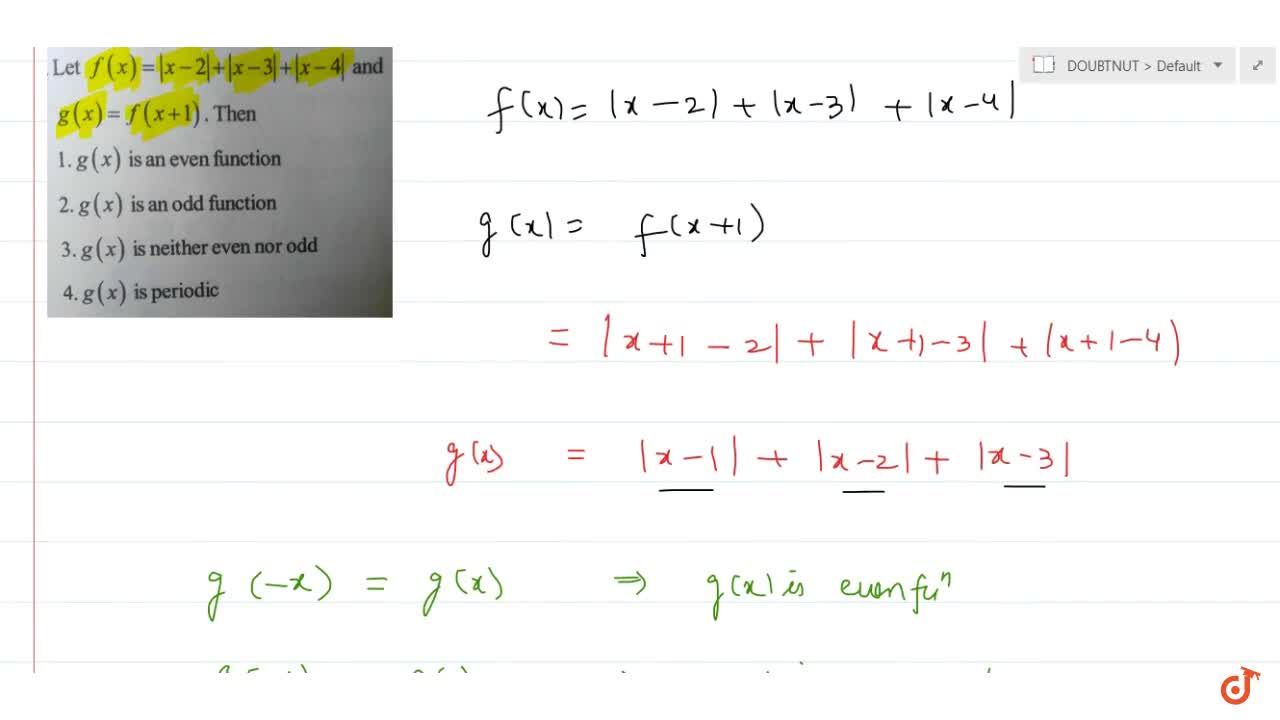 Let f(x)=|x-2|+|x-3|+|x-4| and
g(x)=f(x+1). Then
1. g(x) is an even function
2. g(x) is an odd function
3. g(x) is neither even nor odd
4. g(x) is periodic
DOUBTNUT > Default
f(x) = |x-2| + |x-3| + |x-4|
g(x) = f(x+1)
= |x+1-2| + |x+1-3| + |x+1-4|
g(x) = |x-1| + |x-2| + |x-3|
g(-x) = g(x) ⇒ g(x) is even fuⁿ